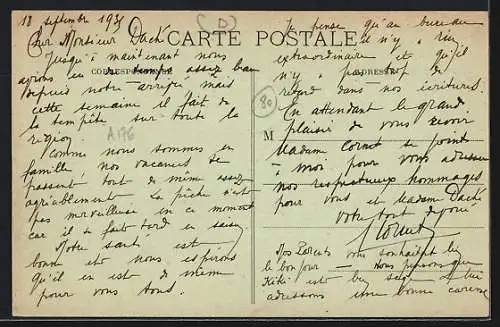 18 septembre 193
(D)
Cher Monsieur Dack
CARTE POSTALE
CORRESPONDANCE
ADRESSE
Jusqu'à maintenant nous
avions eu du temps assez beau
depuis notre arrivée mais
cette semaine il fait de
la tempête sur toute la
région
A176
Comme nous sommes en
famille, nos vacances se
passent tout de même assez
agréablement. La pêche n'est
pas merveilleuse en ce moment
car il se fait tard en saison
Notre santé est
bonne et nous espérons
qu'il en est de même
pour vous tous.
Je pense qu'au bureau
il n'y a rien
extraordinaire et qu'il
n'y a pas trop de
retard dans nos écritures.
80
En attendant le grand
plaisir de vous revoir
M
Madame Cornet se joint
à moi pour vous adresser
nos respectueux hommages
pour vous et Madame Dack
Votre tout dévoué
Cornet
Mes Parents vous souhaitent le
le bonjour — Nous pensons que
Kiki est sage et lui
adressons une bonne caresse